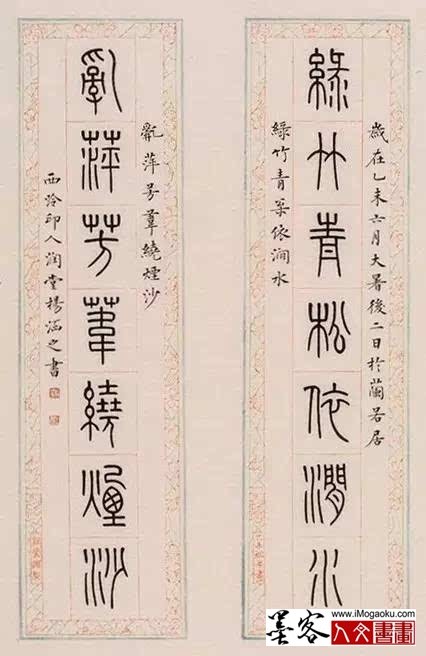 歲在乙未六月大暑後二日於蘭若居
綠竹青松依澗水
綠竹青枀依澗水
亂萍芳葦繞煙沙
亂萍芳葦繞煙沙
西泠印人潤堂楊涵之書
墨客
www.iMogaoku.com
人文書畫